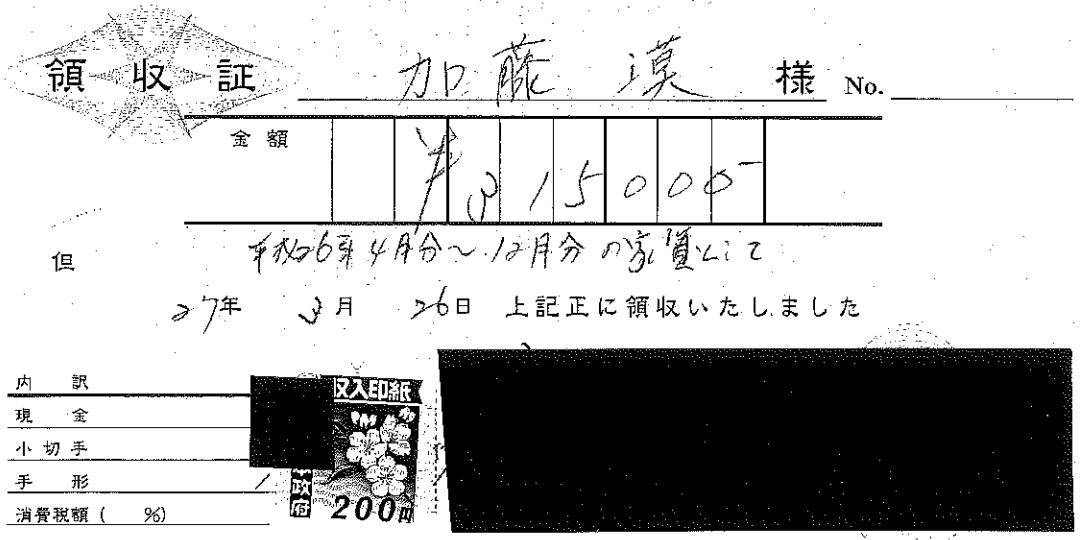 領収証 加藤 漠 様 No.
金額 ¥315000-
但 平成26年4月分〜12月分の家賃として
27年 3月 26日 上記正に領収いたしました
内訳
現金
小切手
手形
消費税額( %)
収入印紙
政府
200円